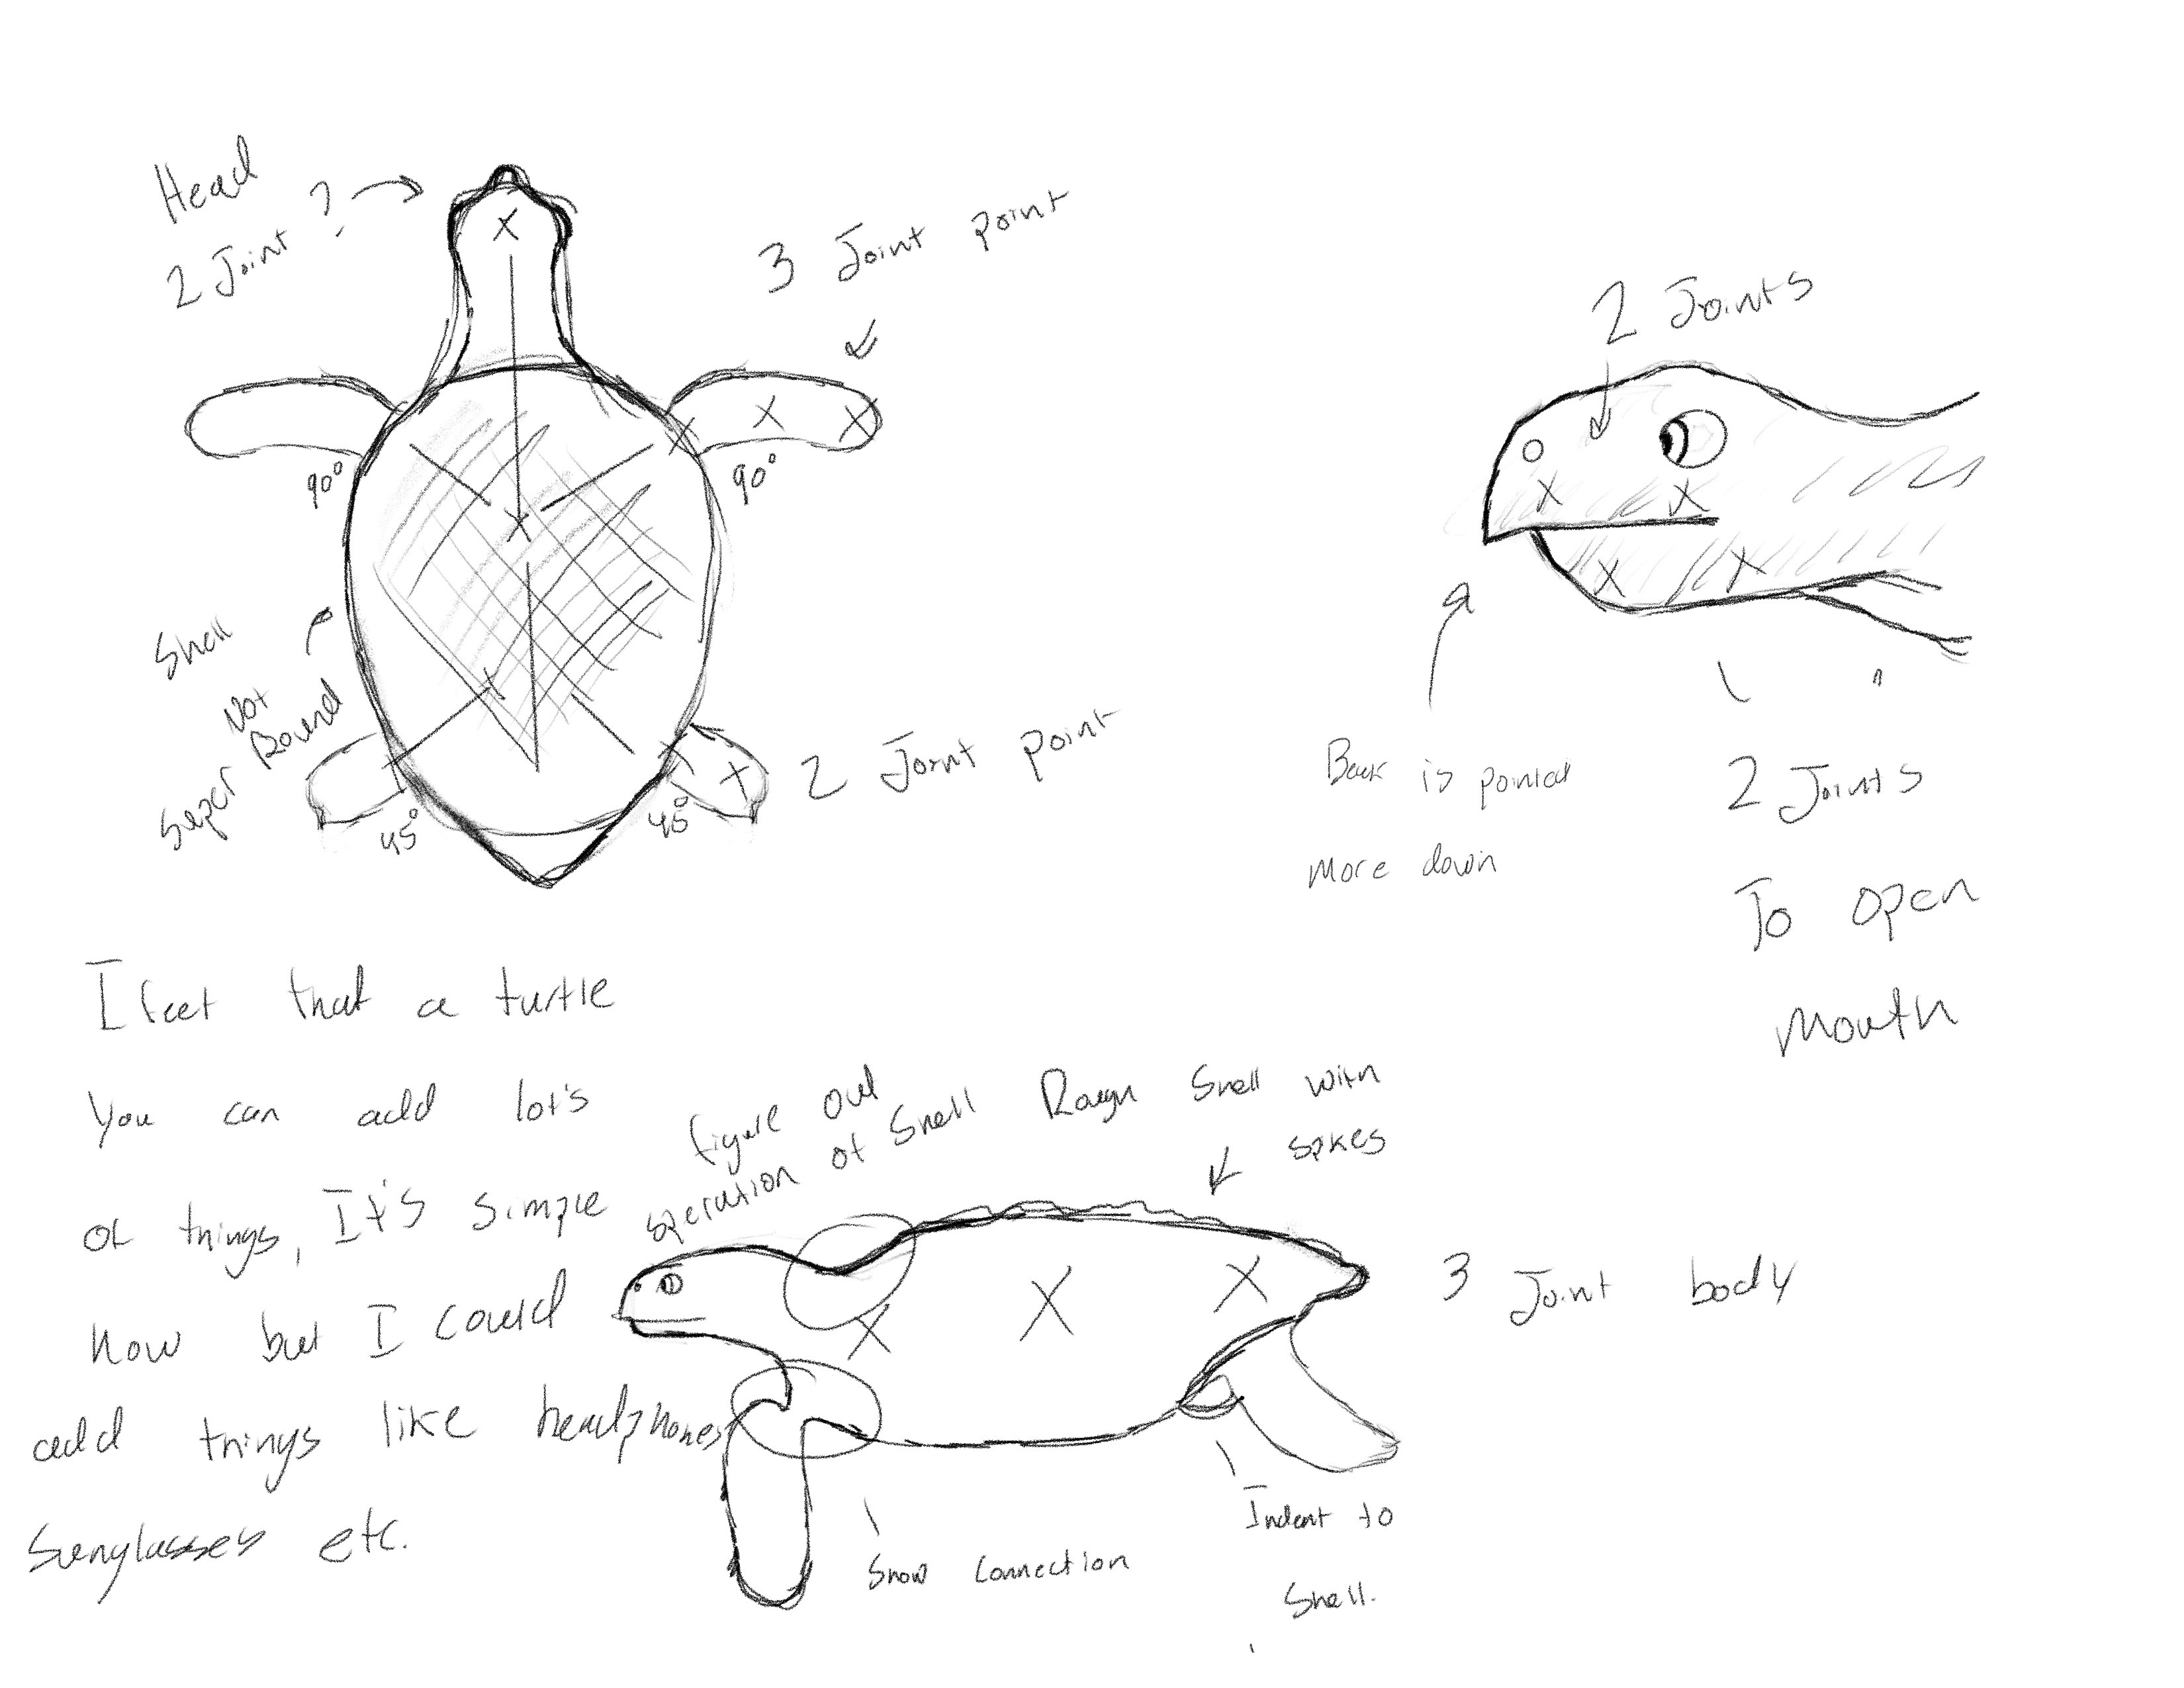 Head
2 Joint ?
3 Joint point
90°
90°
Shell
Not
Super Round
45°
45°
2 Joint point
2 Joints
Beak is pointed
more down
2 Joints
To open
mouth
I feel that a turtle
You can add lot's
of things, It's simple
now but I could
add things like headphones
sunglasses etc.
figure out
speration of Shell
Rough Shell with
spikes
3 Joint body
Show connection
Indent to
Shell.